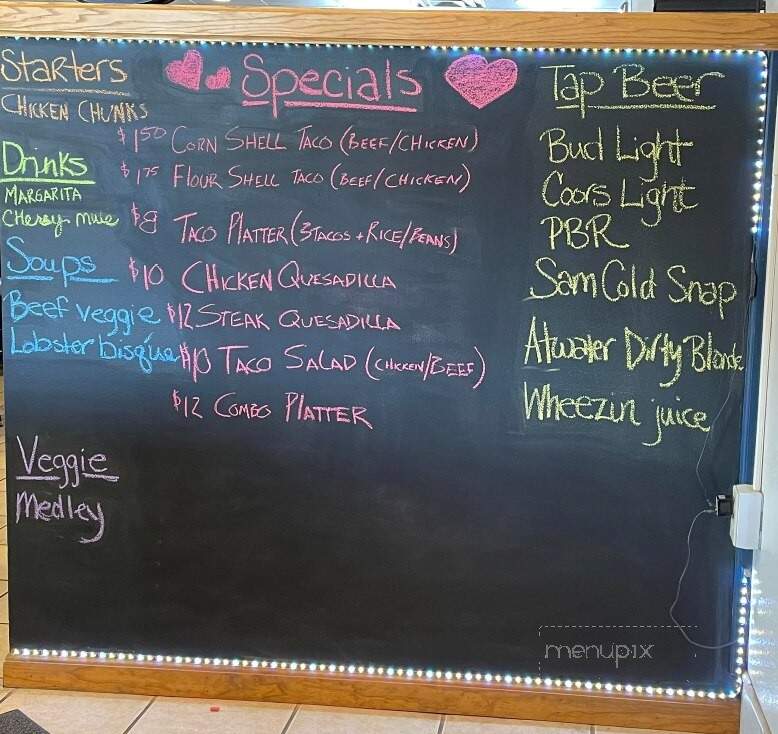 Starters
CHICKEN CHUNKS
Drinks
MARGARITA
Cherry mule
Soups
Beef veggie
Lobster bisque
Veggie
Medley
Specials
$1.50 CORN SHELL TACO (BEEF/CHICKEN)
$1.75 FLOUR SHELL TACO (BEEF/CHICKEN)
$8 TACO PLATTER (3 TACOS + RICE/BEANS)
$10 CHICKEN QUESADILLA
$12 STEAK QUESADILLA
$10 TACO SALAD (CHICKEN/BEEF)
$12 COMBO PLATTER
Tap Beer
Bud Light
Coors Light
PBR
Sam Cold Snap
Atwater Dirty Blonde
Wheezin juice
menupix